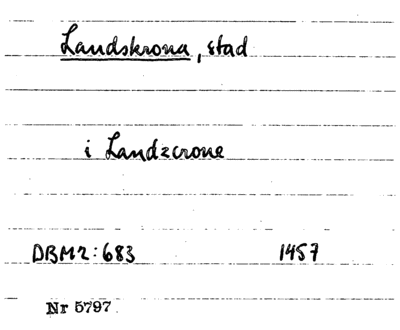 Landskrona, stad
i Landzcrone
DBM2:683 1457
Nr 5797